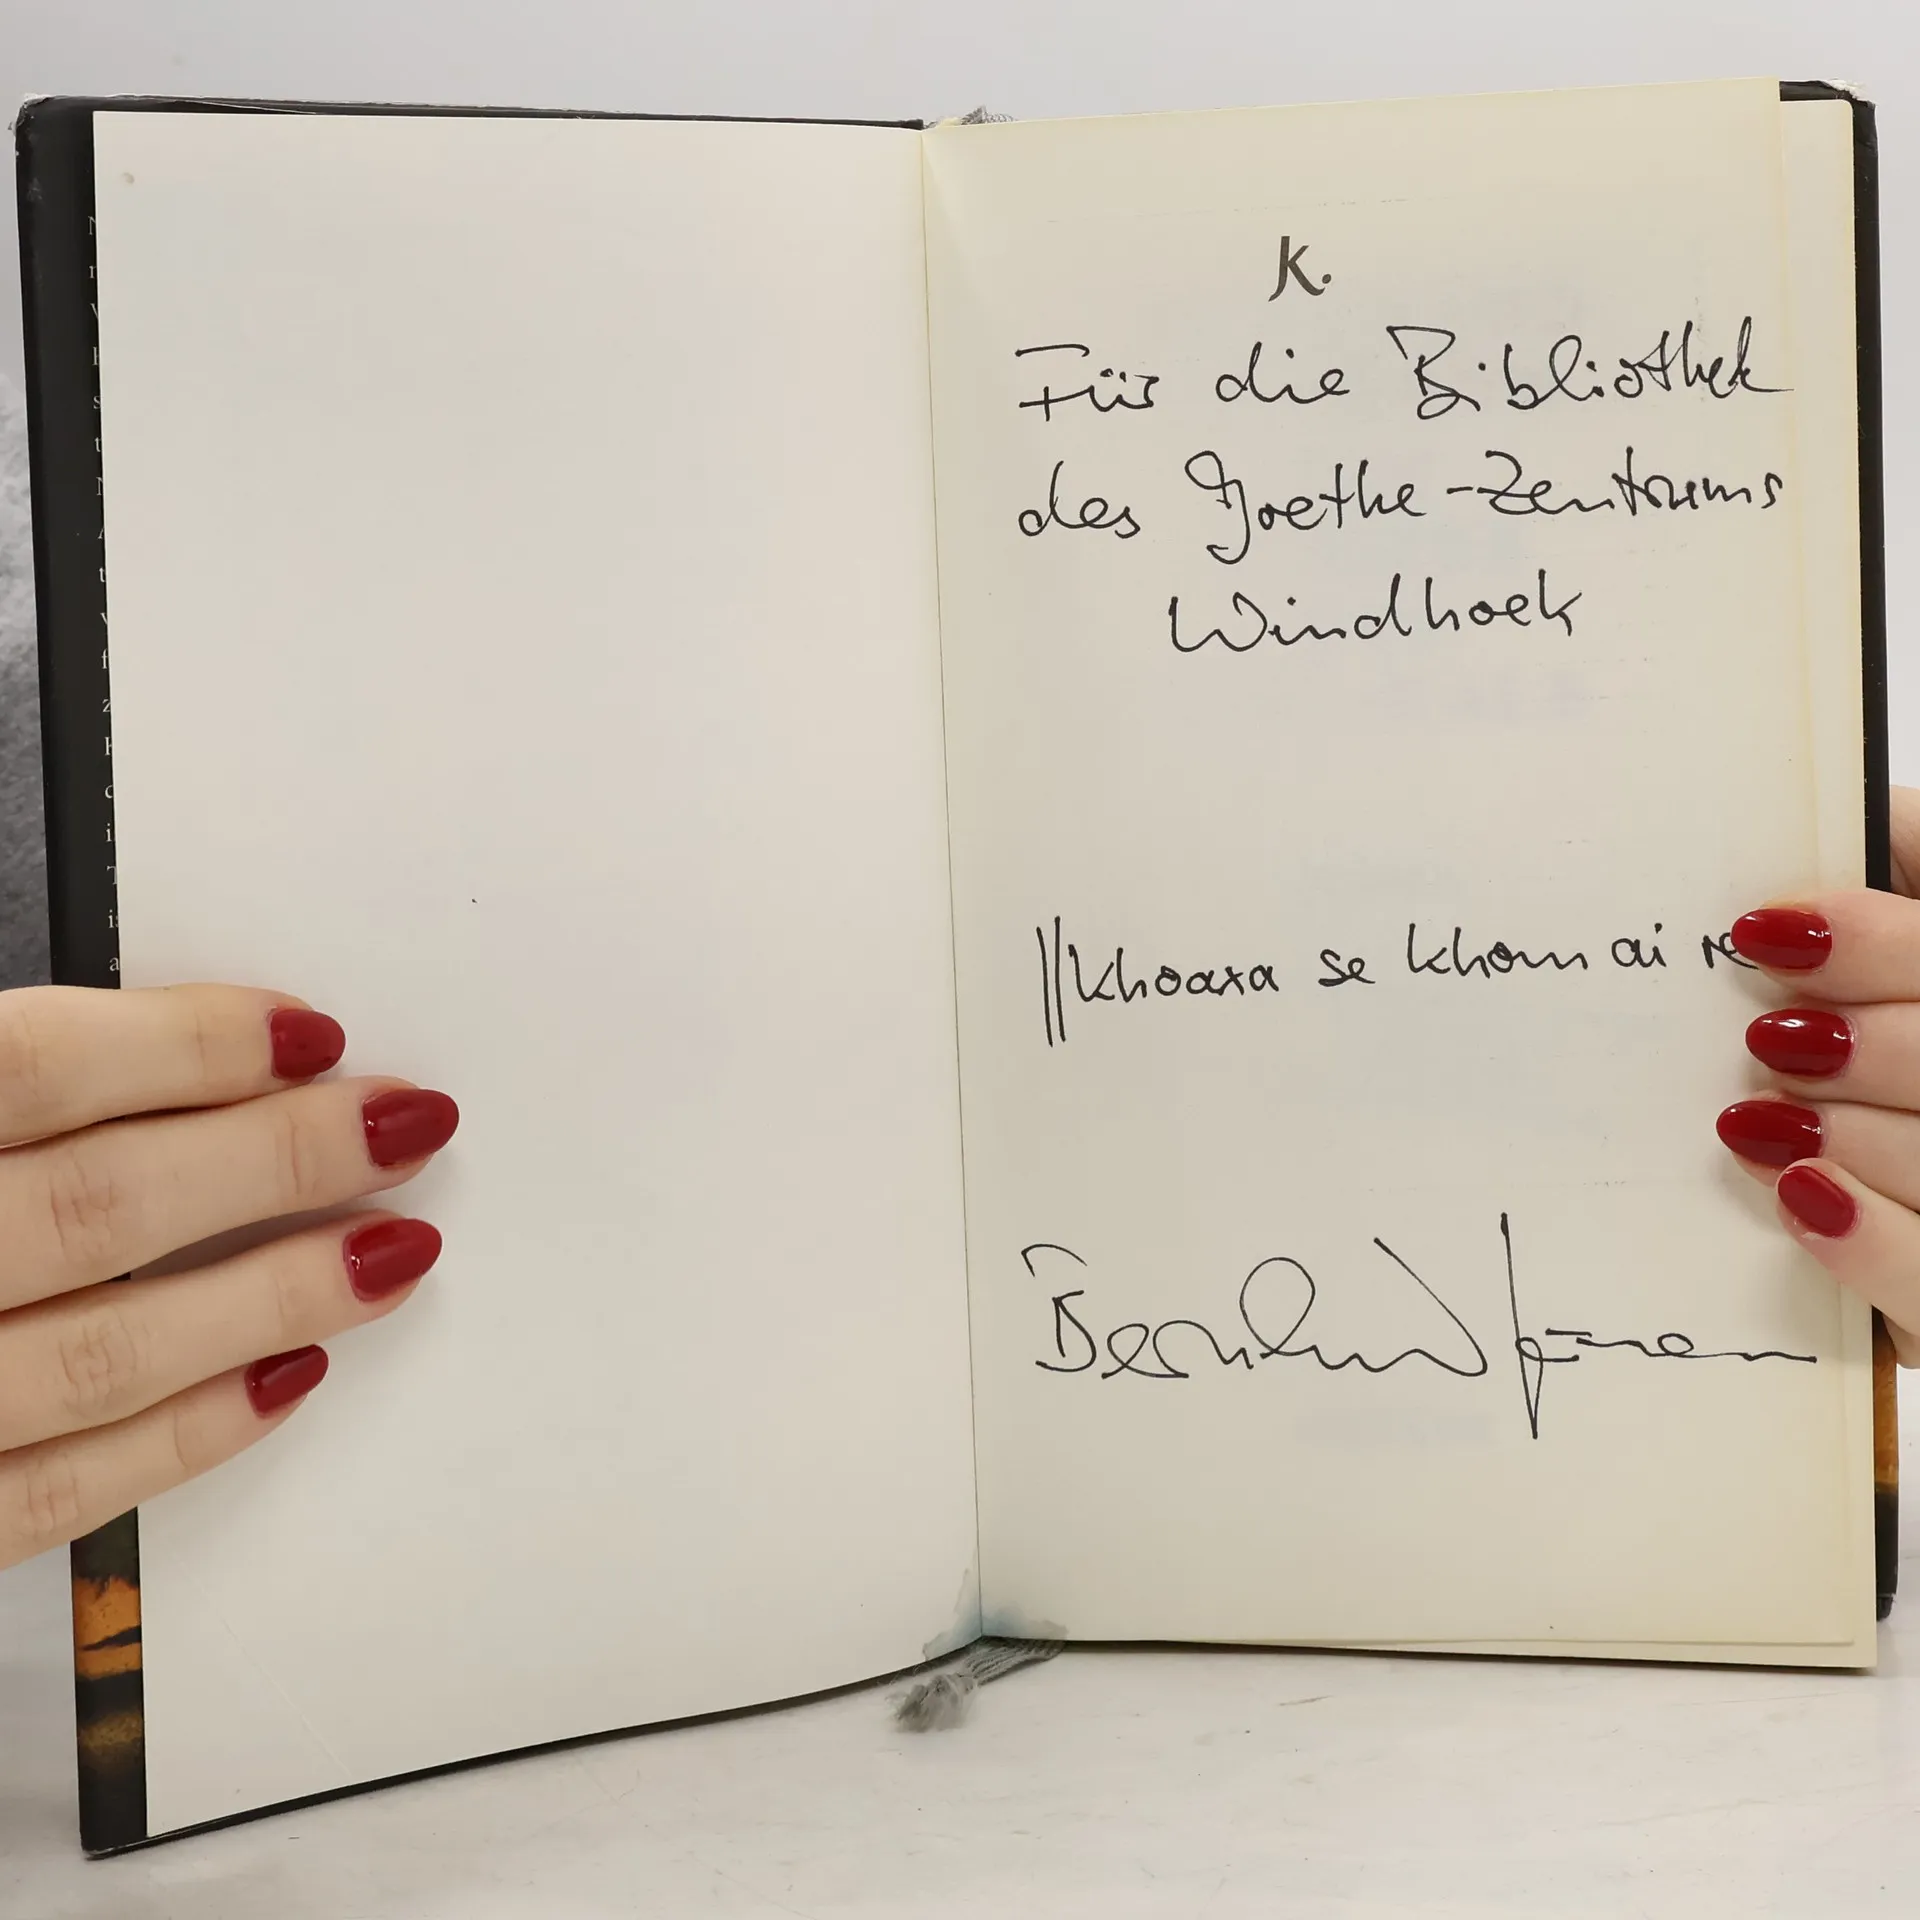 K.
Für die Bibliothek
des Goethe-Zentrums
Windhoek
ǁKhoaxa se khom ai re
Bernhard Jaumann